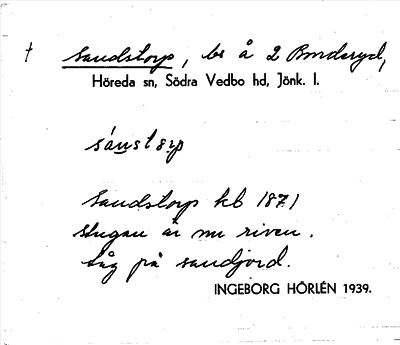 † Sandstorp, bs å 2 Bruderyd,
Höreda sn, Södra Vedbo hd, Jönk. l.
sánstærp
Sandstorp kb 1871
Stugan är nu riven.
Låg på sandjord.
INGEBORG HÖRLÉN 1939.